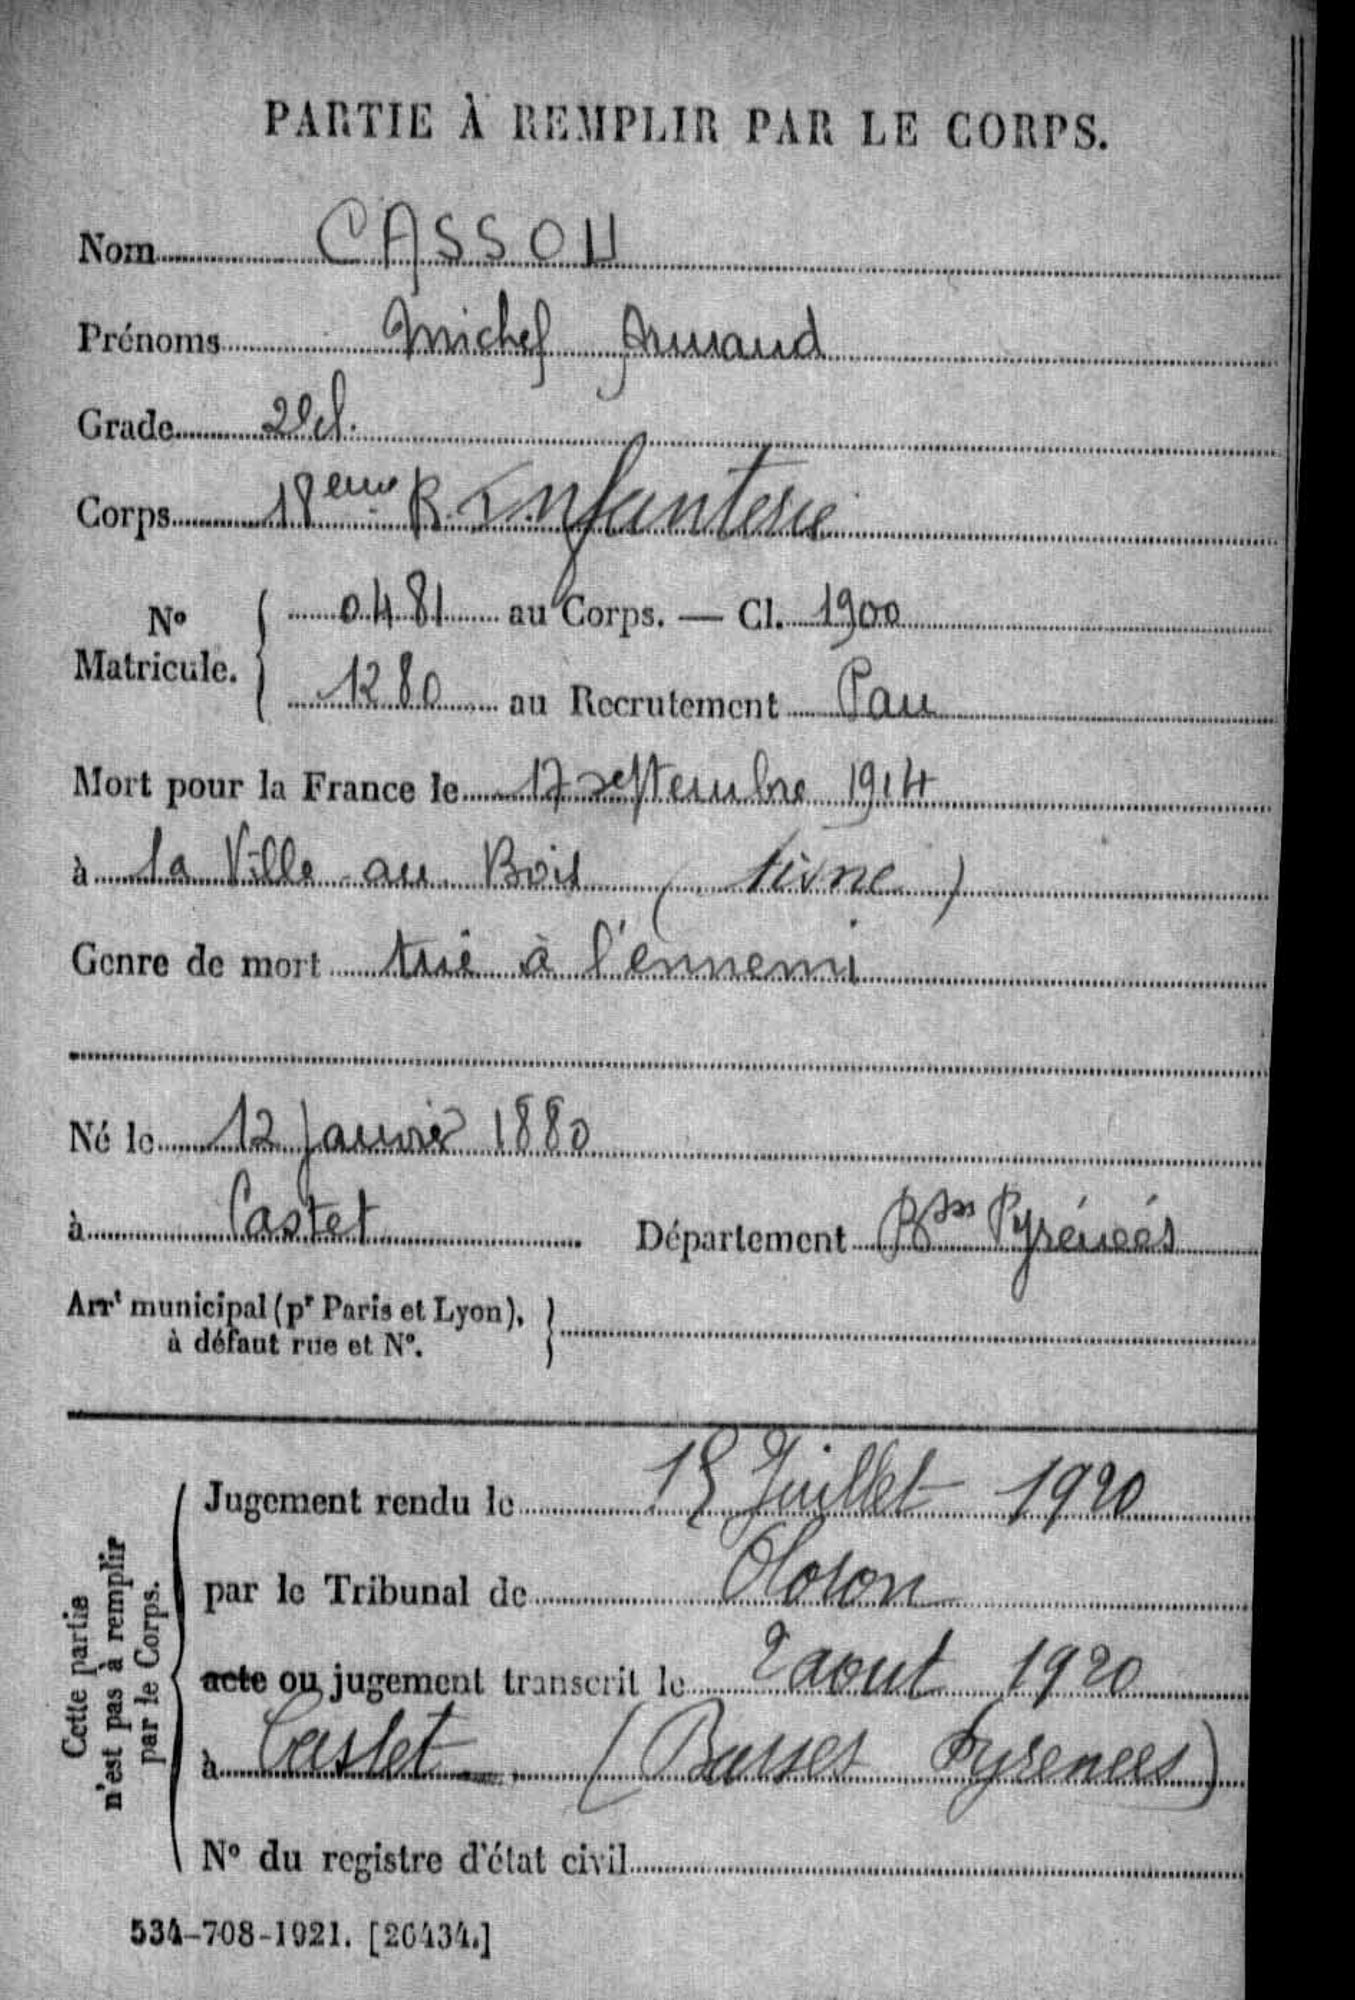 PARTIE À REMPLIR PAR LE CORPS.
Nom CASSOU
Prénoms Michel Armand
Grade 2e cl.
Corps 18eme R. Infanterie
No Matricule. { 0481 au Corps. — Cl. 1900
1280 au Recrutement Pau
Mort pour la France le 17 septembre 1914
à la Ville au Bois (Aisne)
Genre de mort tué à l'ennemi
Né le 12 Janvier 1880
à Castet Département Bses Pyrénées
Arrt municipal (pr Paris et Lyon), à défaut rue et No. }
Cette partie n'est pas à remplir par le Corps.
Jugement rendu le 15 Juillet 1920
par le Tribunal de Oloron
acte ou jugement transcrit le 2 aout 1920
à Castet (Basses Pyrenees)
No du registre d'état civil
534-708-1921. [26434.]